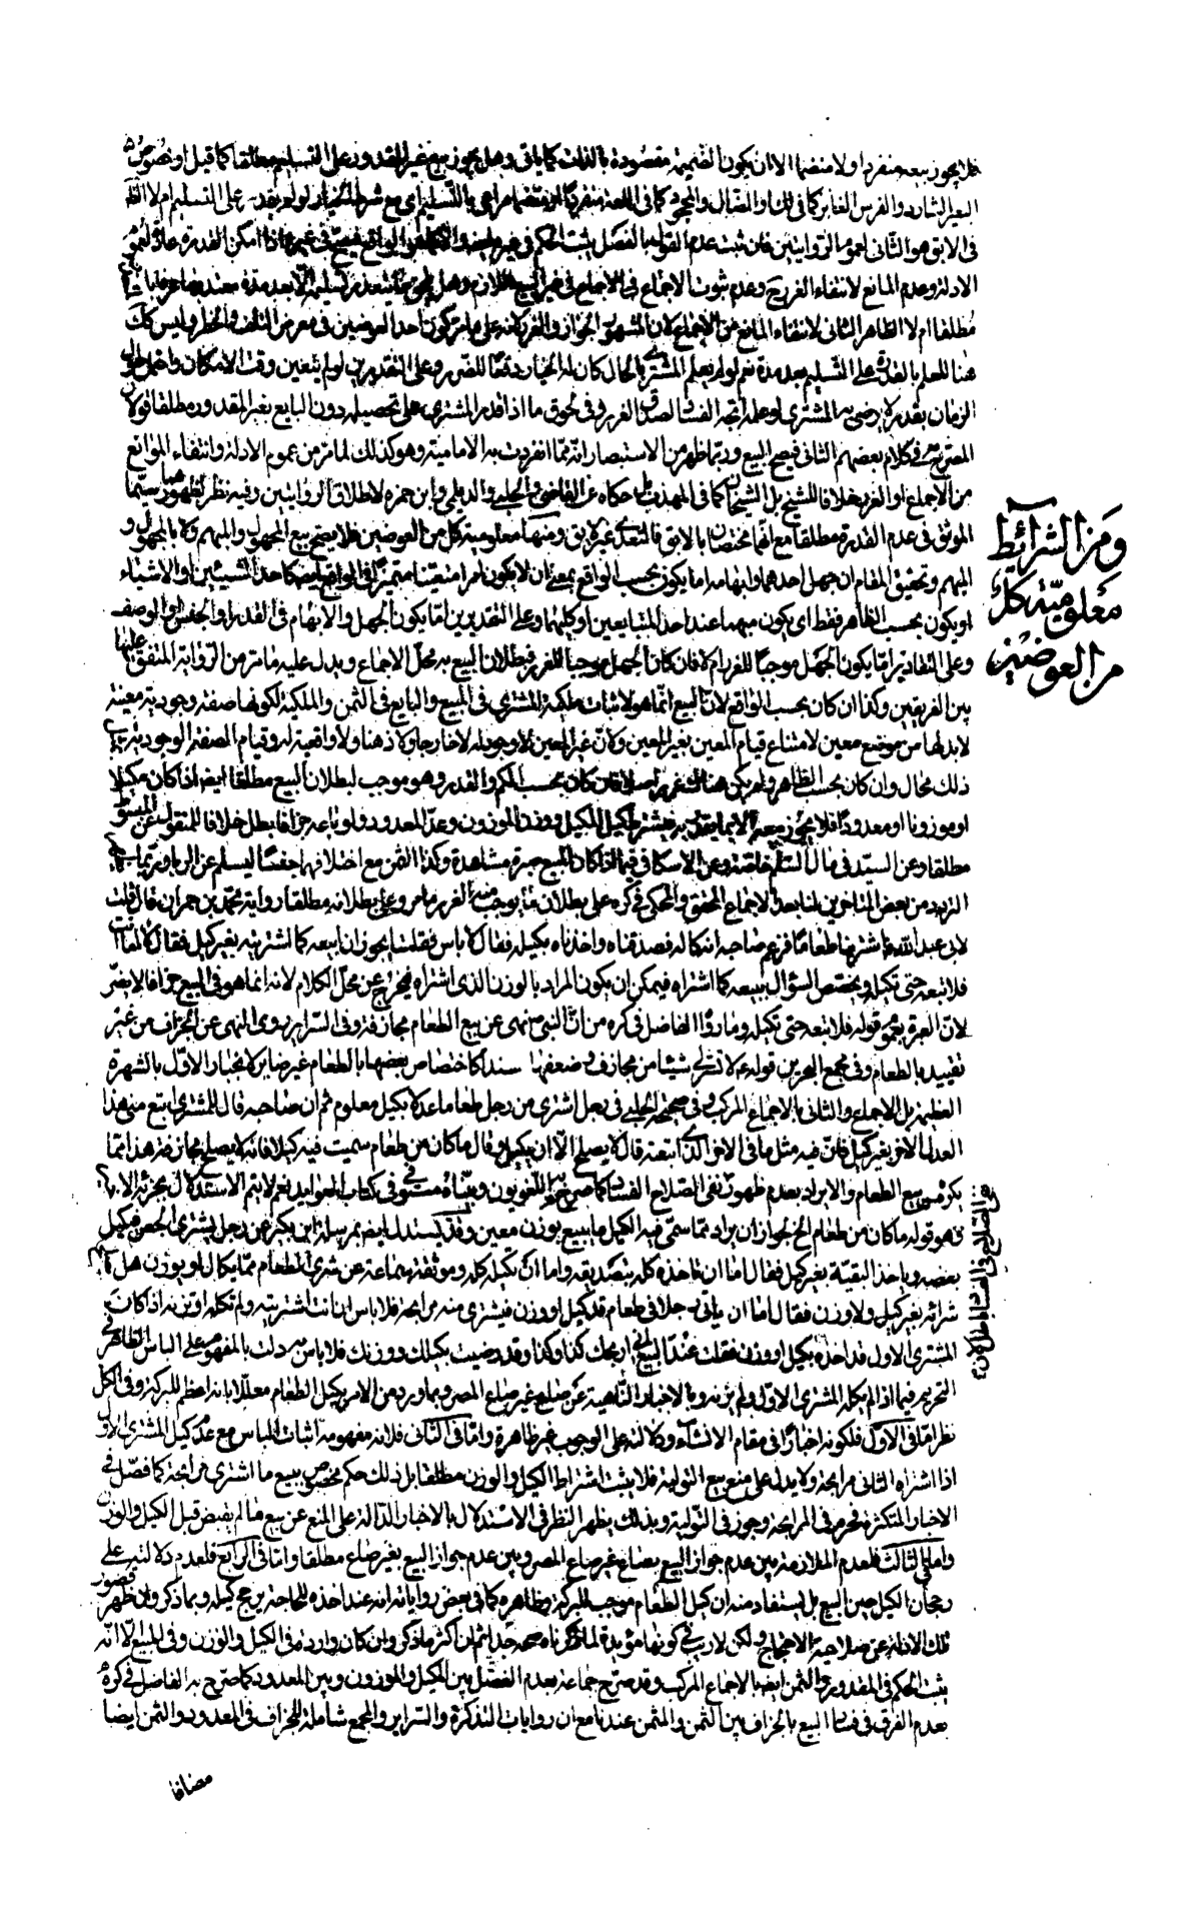 فلا يجوز بيعه منفردا ولا منضما الا ان يكون الضميمة مقصودة بالذات كما ياتى وهل يجوز بيع غير المقدور على التسليم مطلقا كما قيل او نصوص
البعير الشارد والفرس الغاير كما فى لك والضال والمجحود كما فى اللمعة منفردا او منضما مراعى بالتسليم اى مع شرط الخيار لو لم يقدر على التسليم ام لا
فى الابق هو الثانى لعموم الروايتين فان ثبت عدم القول بالفصل يثبت الحكم فى غيره ايضا والا فيصح فى غيره اذا امكن القدرة عادة لعموم
الادلة وعدم المانع لانتفاء الغرر وعدم ثبوت الاجماع فى غير وهل يلحق بما يتعذر تسليمه الا بعد مدة
مطلقا ام لا الظاهر الثانى لانتفاء المانع من الاجماع لان المشهور الجواز والغرر لانه على ما مر كون احد العوضين فى معرض التلف والخطر وليس كك
هنا للعلم بالقدرة على التسليم بعد مدة نعم لو لم يعلم المشترى بالحال كان له الخيار دفعا للضرر وعلى التقديرين لو لم يتعين وقت الامكان واحتمل
الزمان بقدر لا يرضى به المشترى لو علمه اتجه الفساد لصدق الغرر وفى لحوق ما اذا قدر المشترى على تحصيله دون البايع بغير المقدور مطلقا قولان
المصرح به فى كلام بعضهم الثانى فيصح البيع وربما ظهر من الاستبصار انه مما انفردت به الامامية وهو كذلك لما مر من عموم الادلة وانتفاء الموانع
من الاجماع او الغرر خلافا للشيخ بل الشيخان كما فى المهذب حكاه عن القاضى والحلبى والديلمى وابن حمزة لاطلاق الروايتين وفيه نظر لظهورهما سيما
الموثق فى عدم القدرة مطلقا مع انهما مختصان بالابق فالتعدى غير لايق ومنها معلومية كل من العوضين فلا يصح بيع المجهول والمبهم ولا بالمجهول و
المبهم وتحقيق المقام ان جهل احدهما وابهامه اما يكون بحسب الواقع بمعنى ان لا يكون امرا متعينا متميزا فى الواقع كاحد الشيئين او الاشياء
او يكون بحسب الظاهر فقط اى يكون مبهما عند احد المتبايعين او كليهما وعلى التقديرين اما يكون الجهل والابهام فى القدر او الجنس او الوصف
وعلى التقادير اما يكون الجهل موجبا للغرر ام لا فان كان الجهل موجبا للغرر فبطلان البيع به محل الاجماع ويدل عليه ما مر من الرواية المتفق عليها
بين الفريقين وكذا ان كان بحسب الواقع لان البيع انما هو لاثبات ملكية المشترى فى المبيع والبايع فى الثمن والملكية لكونها صفة وجودية معينة
لابد لها من موضع معين لامتناع قيام المعين بغير المعين ولان غير المعين لا وجود له لا خارجا ولا ذهنا ولا واقعية له وقيام الصفة الوجودية بمثل
ذلك محال وان كان بحسب الظاهر ولم يكن هناك غرر اصلا فان كان بحسب الكم والقدر وهو موجب لبطلان البيع مطلقا ايضا اذا كان مكيلا
او موزونا او معدودا فلا يجوز بيعه الا بما يقدر به فيشترط كيل المكيل ووزن الموزون وعد المعدود ولو باعه جزافا بطل خلافا للمنقول عن المبسوط
مطلقا وعن السيد فى مال السلم خاصة وعن الاسكافى فيما اذا كان المبيع صبرة مشاهدة وكذا الثمن مع اختلافهما جنسا ليسلم عن الربا وربما
التردد من بعض المتاخرين لنا بعد الاجماع المحقق والمحكى فى كره على بطلان ما يوجب منه الغرر ما مر وعلى بطلانه مطلقا رواية محمد بن حمران قال قلت
لابى عبدالله اشترينا طعاما فزعم صاحبه انه كاله فصدقناه واخذناه بكيله فقال لا باس فقلت ايجوز ان ابيعه كما اشتريته بغير كيل فقال لا اما انت
فلا تبعه حتى تكيله ويختص السؤال ببيعه كما اشتراه فيمكن ان يكون المراد بالوزن الذى اشتراه فيخرج عن محل الكلام لانه انما هو فى البيع جزافا لا يضر
لان العبرة بعموم قوله فلا تبعه حتى تكيله وما رواه الفاضل فى كره من ان النبى ص نهى عن بيع الطعام مجازفة وفى السراير روى النهى عن الجزاف من غير
تقييد بالطعام وفى مجمع البحرين قوله ع لا تشتر لى شيئا من مجازف وضعفها سندا كاختصاص بعضها بالطعام غير ضاير لانجبار الاول بالشهرة
العظيمة بل الاجماع والثانى بالاجماع المركب وفى صحيحة الحلبى فى رجل اشترى من رجل طعاما عدلا بكيل معلوم ثم ان صاحبه قال للمشترى ابتع منى هذا
العدل الاخر بغير كيل فان فيه مثل ما فى الاخر الذى ابتعته قال لا يصلح الا ان يكيل وقال ما كان من طعام سميت فيه كيلا فانه لا يصلح مجازفة هذا مما
يكره من بيع الطعام والايراد بعدم ظهور نفى الصلاح الفساد كما صرح به اللغويون وبيناه مستوفى فى كتاب العوايد نعم لا يتم الاستدلال بجزئه الاخر
وهو قوله ما كان من طعام الخ لجواز ان يراد مما سمى فيه الكيل ما يبيع بوزن معين وقد يستدل ايضا بمرسلة ابن بكير عن رجل يشترى الجص فيكيل
بعضه وياخذ البقية بغير كيل فقال اما ان تاخذ كله بتصديقه واما ان تكيله كله وموثقة سماعة عن شرى الطعام مما يكال او يوزن هل
شرائه بغير كيل ولا وزن فقال اما ان ياتى رجلا فى طعام قد كيل او وزن فيشترى منه مرابحة فلا باس ان انت اشتريته ولم تكله او تزنه اذا كان
المشترى الاول قد اخذه بكيل او وزن فقلت عند البيع انى اربحك كذا وكذا وقد رضيت بكيلك ووزنك فلا باس به دلت بالمفهوم على الباس الظاهر فى
التحريم فيما اذا لم يكله المشترى الاول ولم يزنه وبالاخبار الناهية عن صاع غير صاع المصر وبما ورد من الامر بكيل الطعام معللا بانه اعظم للبركة وفى الكل
نظر اما فى الاول فلكونه اخبارا فى مقام الانشاء ودلالته على الوجوب غير ظاهرة واما فى الثانى فلانه مفهومه اثبات الباس مع عدم كيل المشترى الاول
اذا اشتراه الثانى مرابحة ولا يدل على منع بيع التولية فلا يثبت اشتراط الكيل والوزن مطلقا بل ذلك حكم مختص ببيع ما اشترى مرابحة كما فصل فى
الاخبار المتكثرة فحرم فى المرابحة وجوز فى التولية وبذلك يظهر النظر فى الاستدلال بالاخبار الدالة على المنع عن بيع ما لم يقبض قبل الكيل والوزن
واما فى الثالث فلعدم الملازمة بين عدم جواز البيع بصاع غير صاع المصر وبين عدم جواز البيع بغير صاع مطلقا واما فى الرابع فلعدم دلالته على
رجحان الكيل حين البيع بل يستفاد منه ان كيل الطعام موجب للبركة وظاهره كما فى بعض رواياته انه عند اخذه للحاجة يرجح كيله وبما ذكر ولان ظهر قصور
تلك الادلة عن صلاحية الاحتجاج ولكن لا ريب فى كونها مؤيدة لما ذكرناه جدا ثم ان اكثر ما ذكر وان كان واردة فى الكيل والوزن وفى المبيع الا انه
يثبت الحكم فى المعدود والثمن ايضا بالاجماع المركب وقد صرح جماعة بعدم الفصل بين المكيل والموزون وبين المعدود كما صرح به الفاضل فى كره
بعدم الفرق فى فساد البيع بالجزاف بين الثمن والمثمن عندنا مع ان روايات التذكرة والسراير والمجمع شاملة للجزاف فى المعدود والثمن ايضا
مضافا
ومن الشرائط
معلومية كل
من العوضين